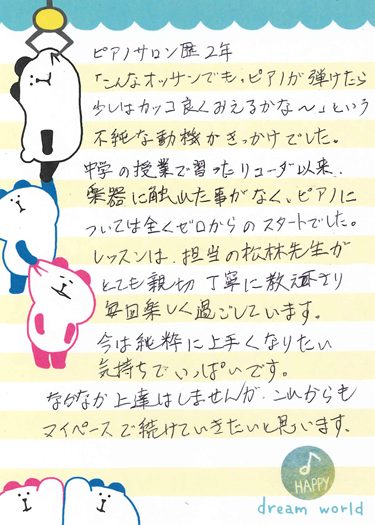 ピアノサロン歴2年
「こんなオッサンでも、ピアノが弾けたら
少しはカッコ良くみえるかな〜」という
不純な動機がきっかけでした。
中学の授業で習ったリコーダ以来、
楽器に触れた事がなく、ピアノに
ついては全くゼロからのスタートでした。
レッスンは、担当の松林先生が
とても親切丁寧に教え下さり
毎回楽しく過ごしています。
今は純粋に上手くなりたい
気持ちでいっぱいです。
なかなか上達はしませんが、これからも
マイペースで続けていきたいと思います。
HAPPY
dream world